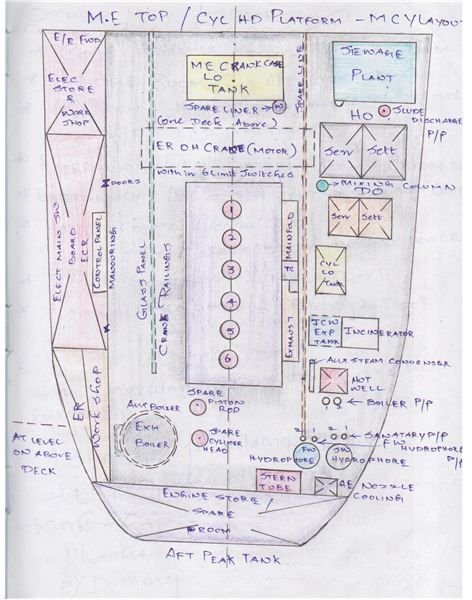 M.E TOP / CYL HD PLATFORM - MCYLAYOUT
E/R FWD
ELEC
STORE
&
WORK
SHOP
ME CRANKCASE
LO
TANK
SPARE LINE
SEWAGE
PLANT
SPARE LINER
W
(one Deck Above)
HO
SLUDE
DISCHARGE
P/P
ER OH CRANE (MOTOR)
within 6 Limit Switches
Serv
Sett
MIXING COLUMN
DO
Serv
Sett
DOORS
ELECT MAIN SW
BOARD
ECR
CONTROL PANEL
MANOURING
GLASS PANEL
CRANK RAILINGS
1
2
3
4
5
6
MAINFOLD
EXHAUST
CYL
LO
TANK
JCW
EXP
TANK
INCINERATOR
AUX STEAM CONDENSER
HOT
WELL
1 2
BOILER P/P
ER
WORK SHOP
AUX BOILER
EXH
BOILER
SPARE
PISTON
ROD
SPARE
CYLINDER
HEAD
2 1 2 1
SANATARY P/P
FW
HYDROPHORE
P/P
AT LEVEL
ON ABOVE
DECK
HYDROPHORE
FW
SW
HYDROPHORE
STERN
TUBE
AE NOZZLE
COOLING
ENGINE STORE /
SPARE
ROOM
AFT PEAK TANK